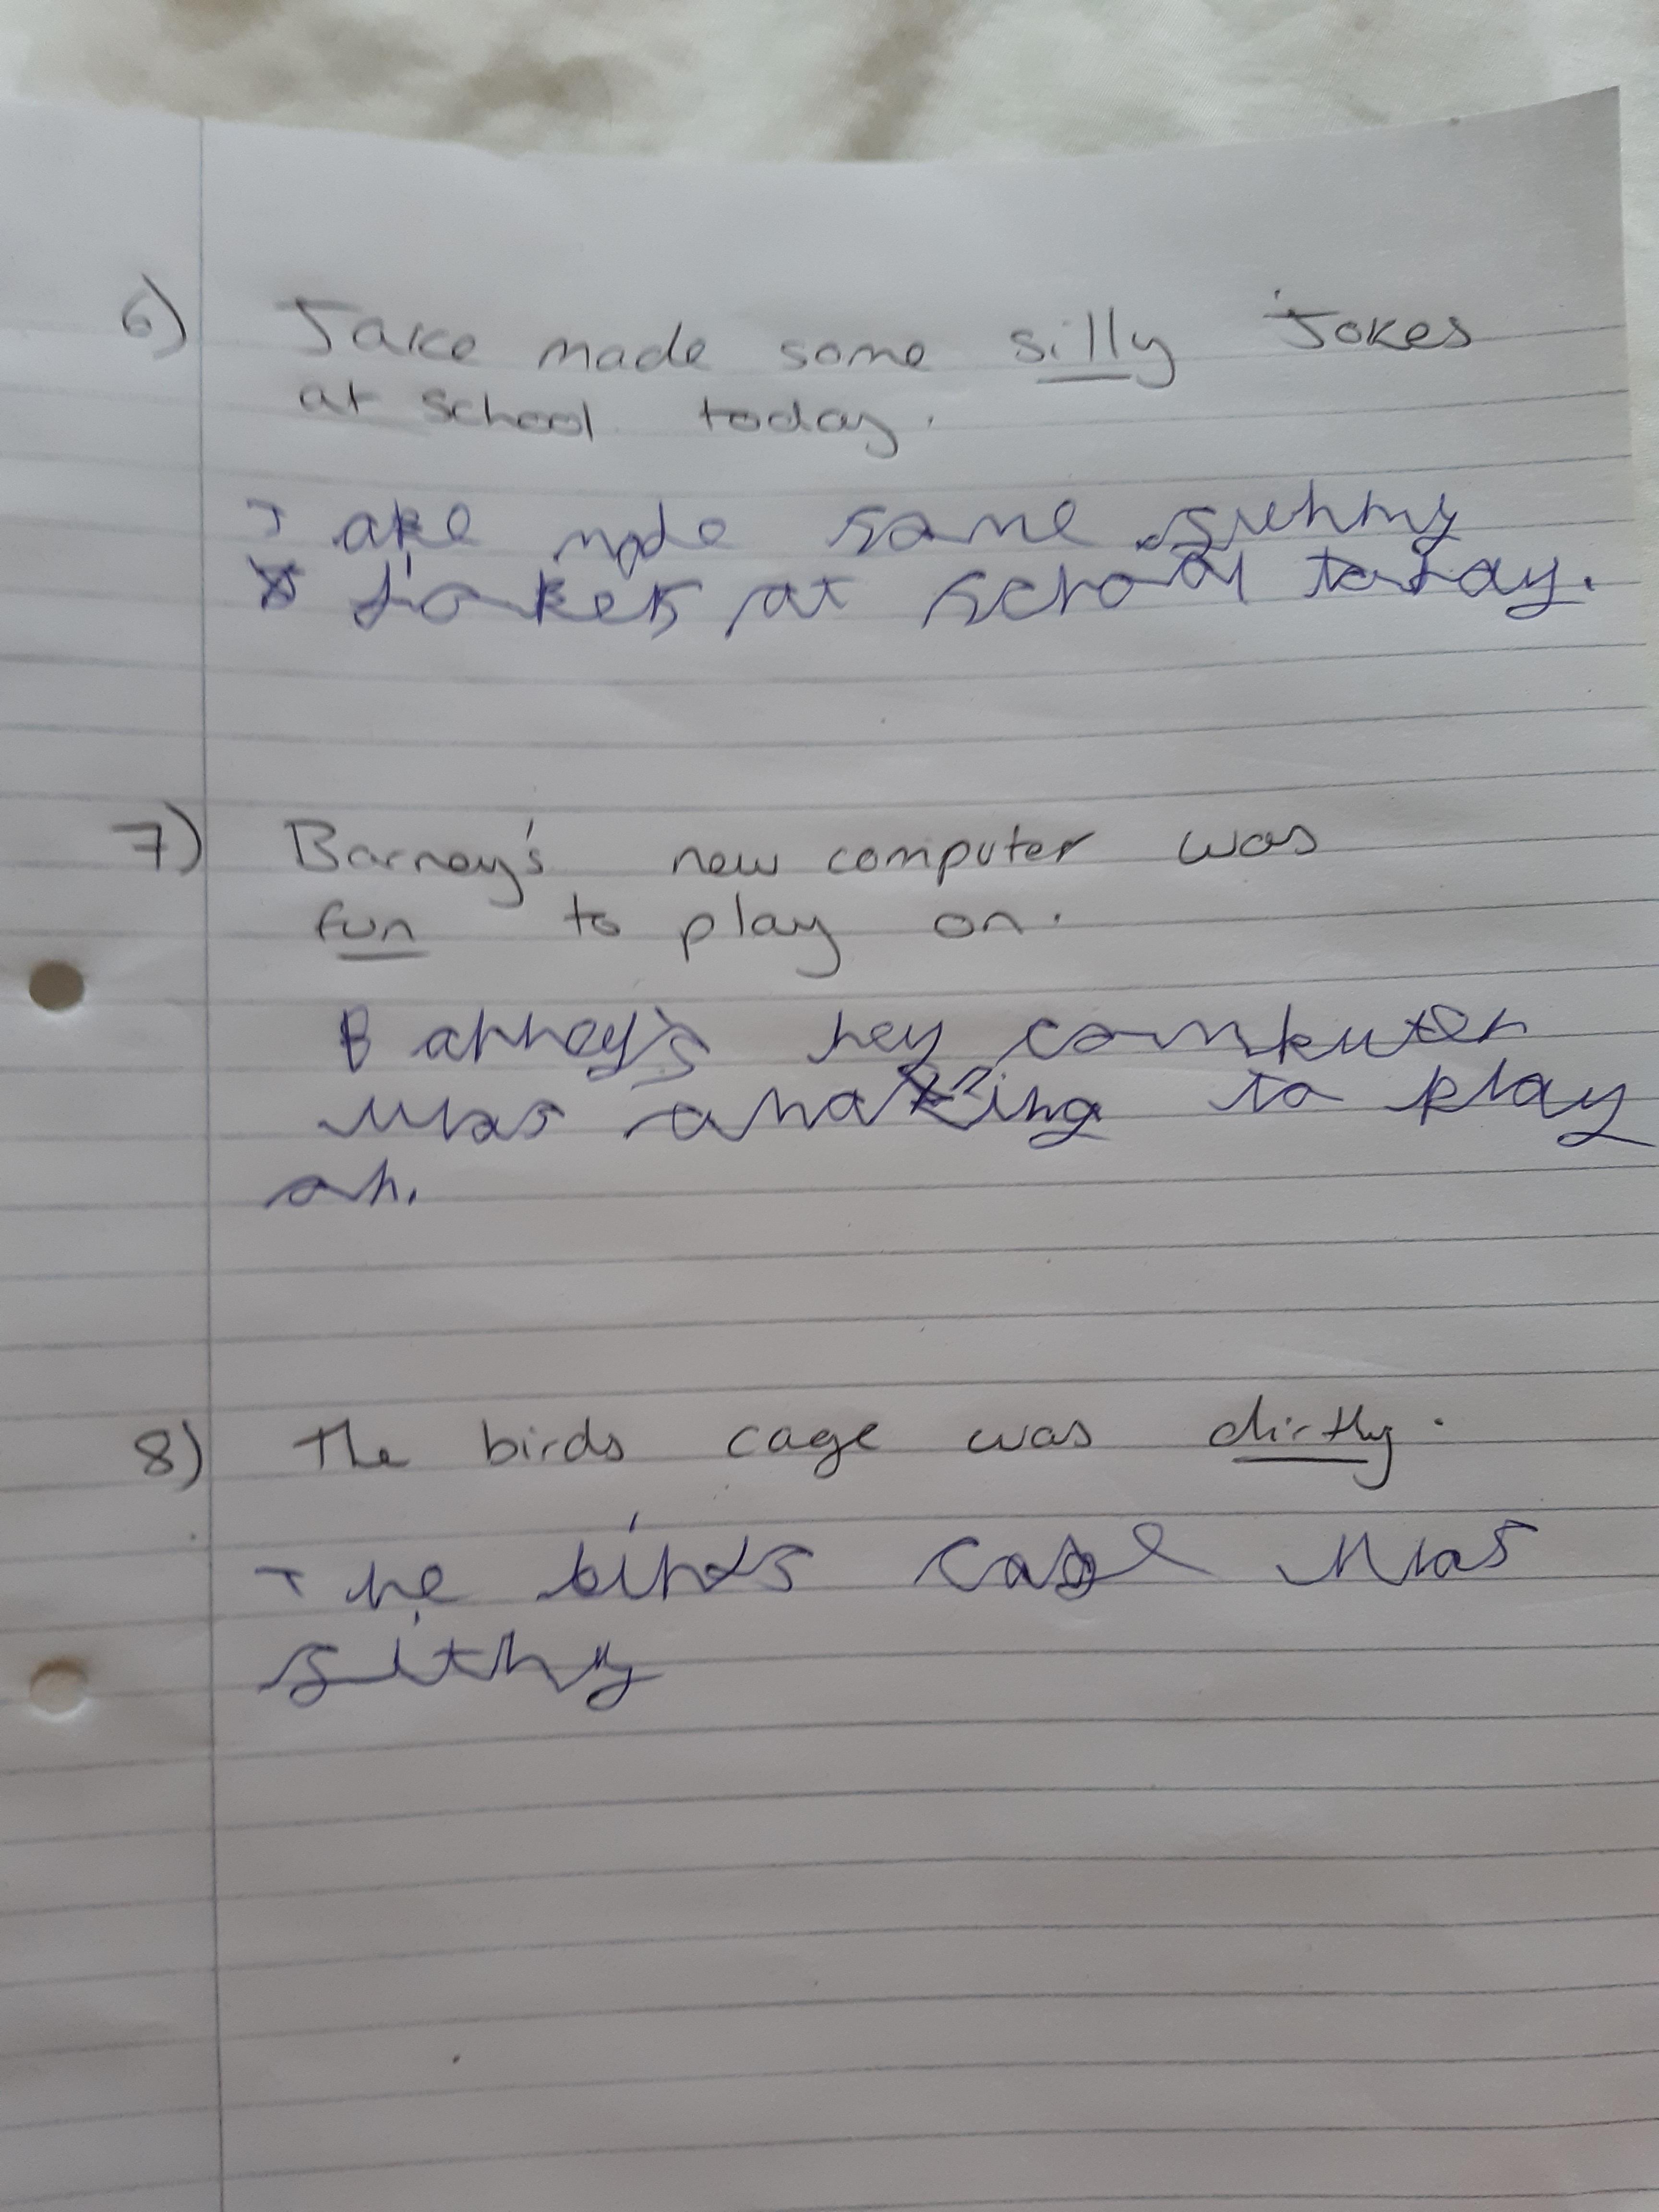 6) Jake made some silly Jokes
at school today.
Jake made some funny
Jokes at school today.
7) Barney's new computer was
fun to play on.
Barney's new computer
was amazing to play
on.
8) The birds cage was dirty.
The birds cage was
filthy